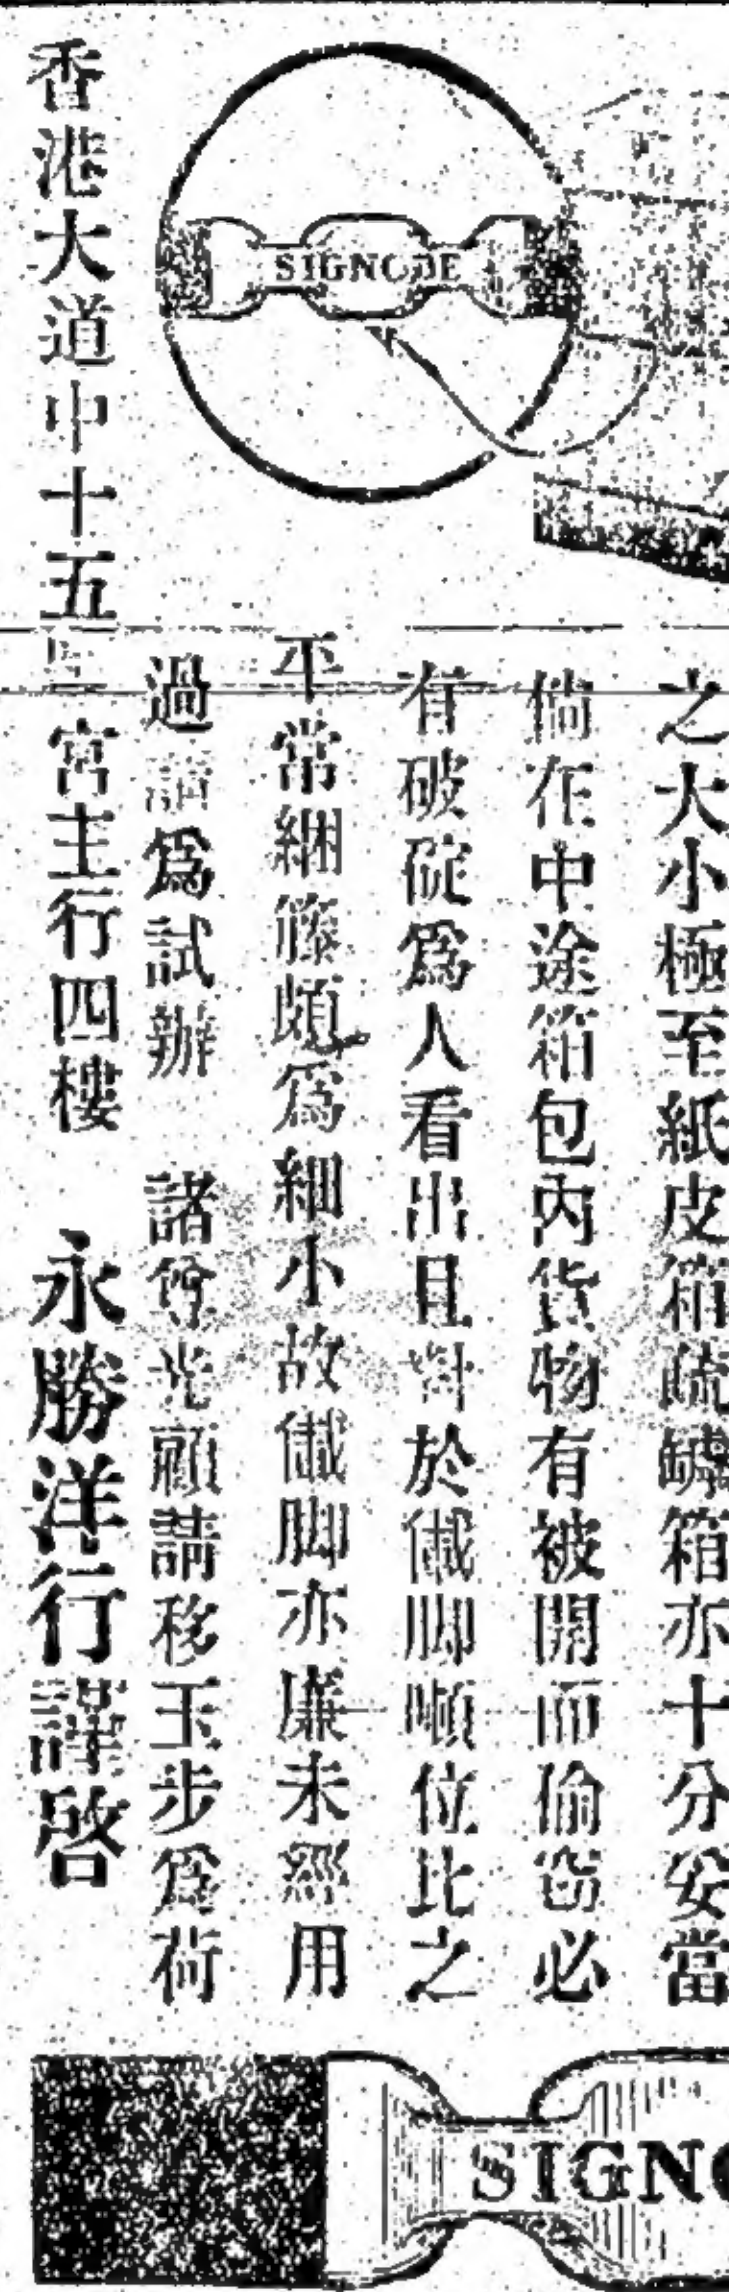 SIGNODE
之大小極至紙皮箱疏罅箱亦十分妥當
倘在中途箱包內貨物有被開而偷窃必
有破碇為人看出且對於儎脚噸位比之
平常綑籐頗為細小故儎脚亦廉未經用
過請為試辦 諸翁光顧請移玉步為荷
香港大道中十五 宮主行四樓 永勝洋行謹啓
SIGNO